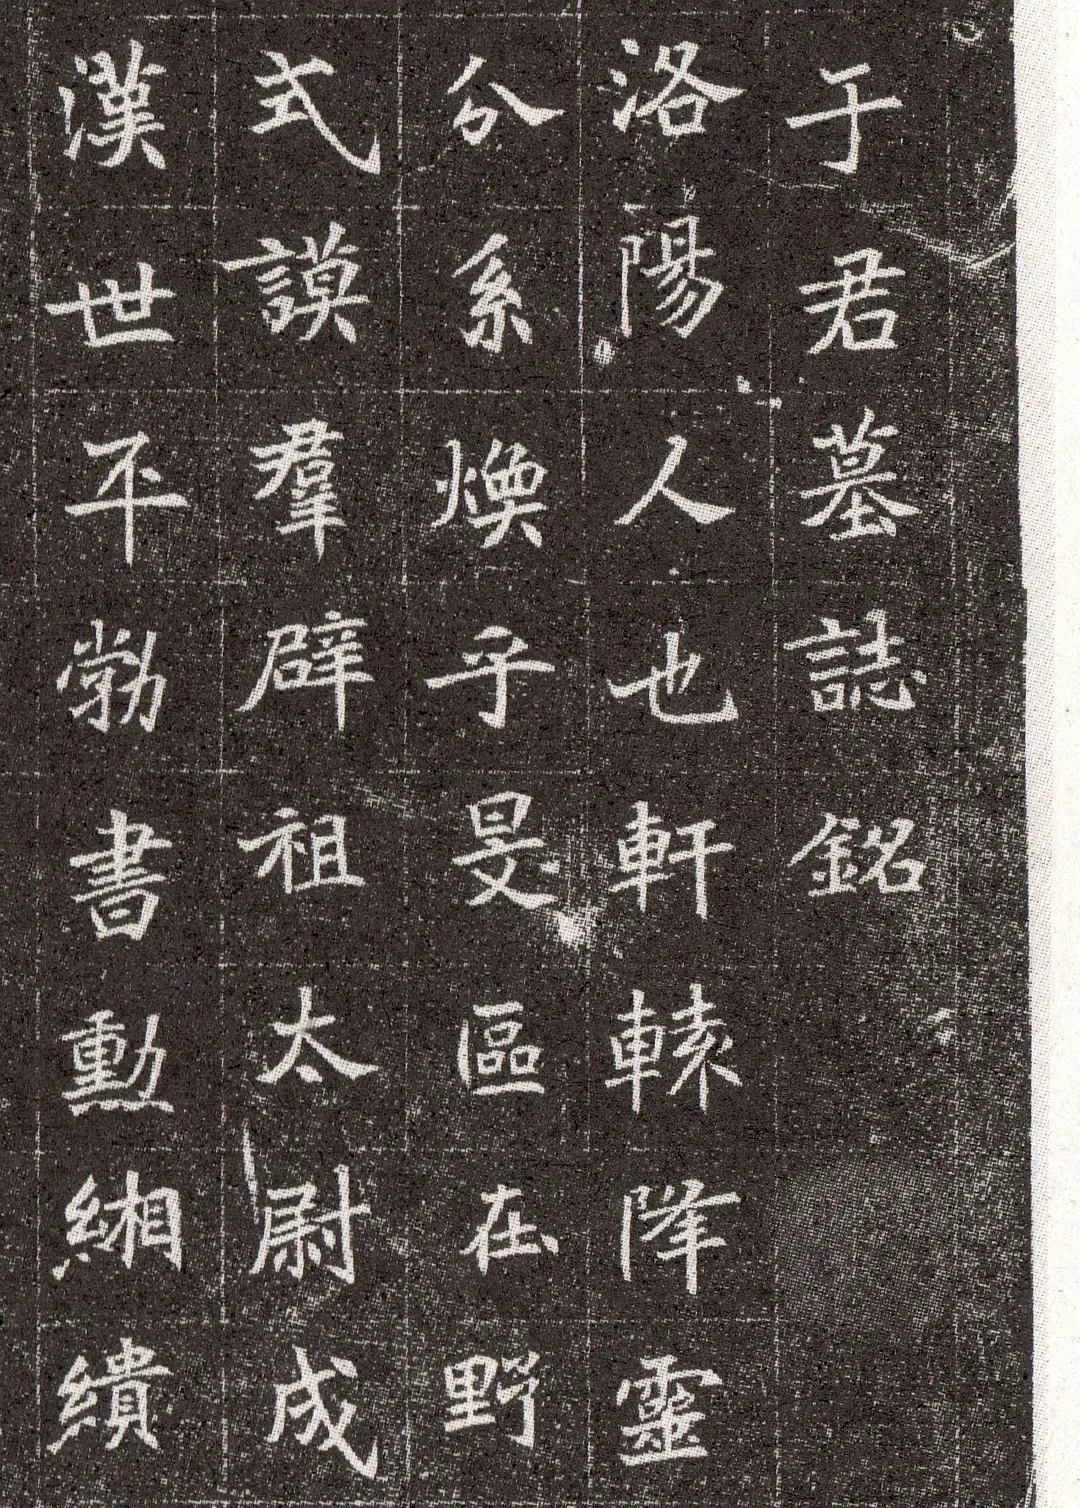 于君墓誌銘
洛陽人也軒轅降靈
分系煥乎旻區在野
式謨羣辟祖太尉成
漢世平勃書勳緗縹